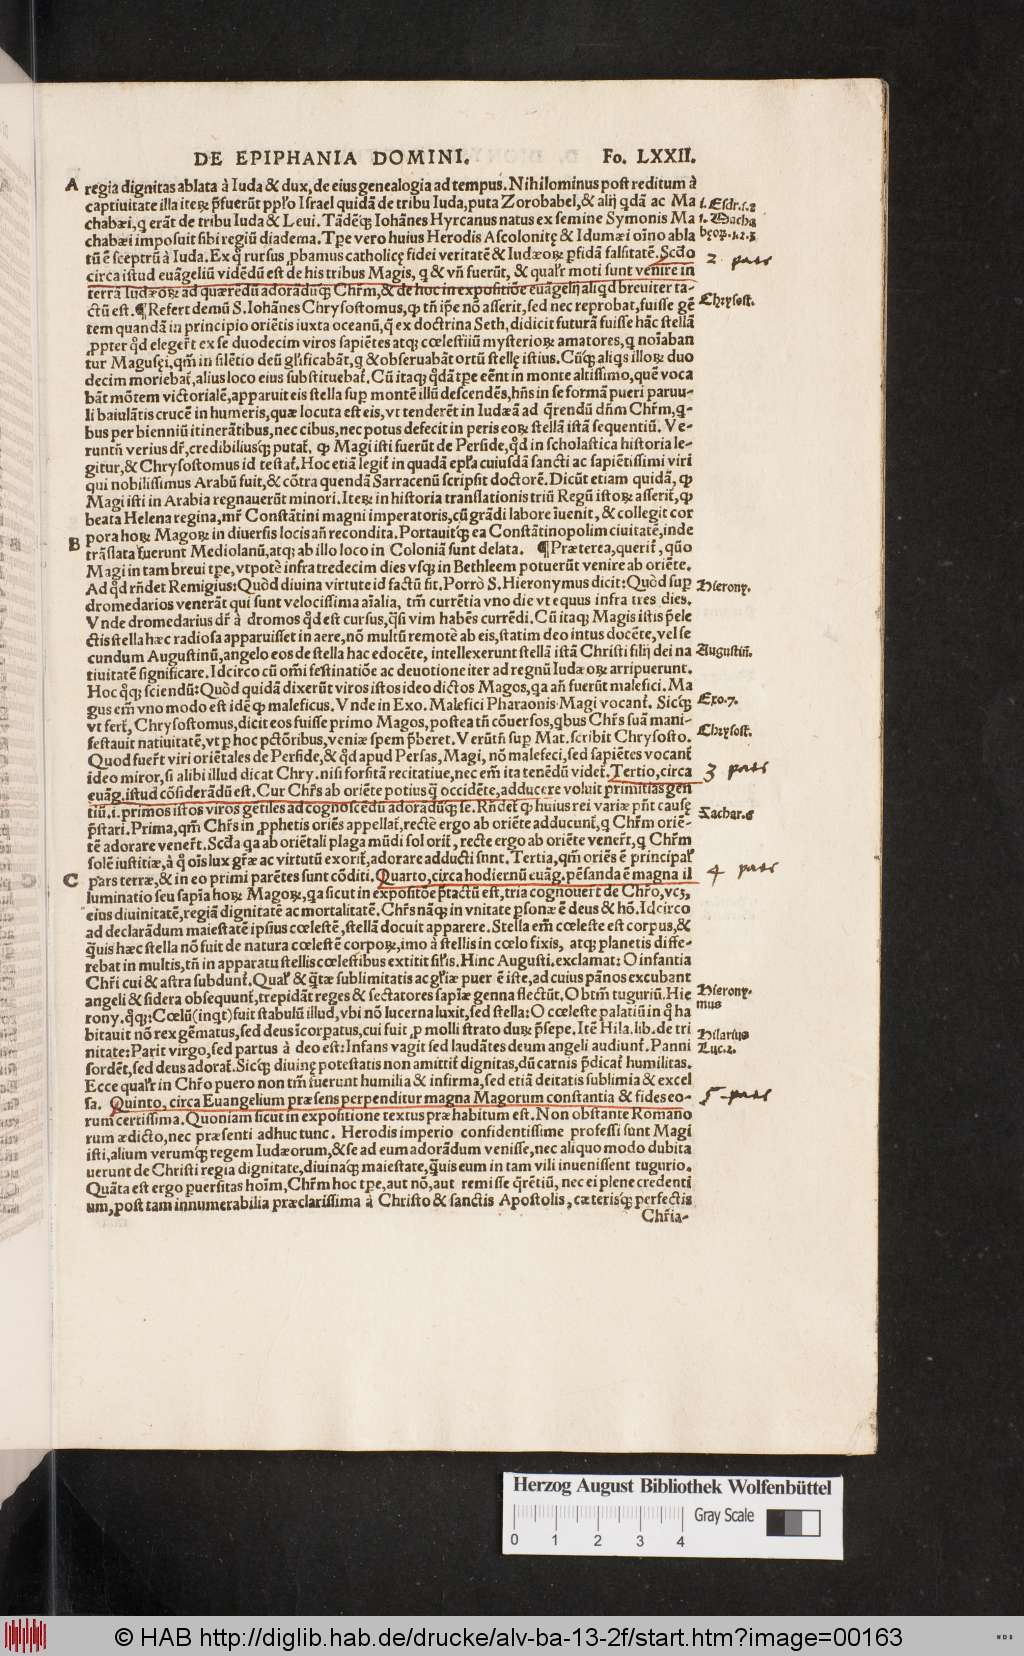 DE EPIPHANIA DOMINI. Fo. LXXII.
A regia dignitas ablata à Iuda & dux, de eius genealogia ad tempus. Nihilominus post reditum à
captiuitate illa iteꝝ p̃fuerũt pp̃lo Israel quidã de tribu Iuda, puta Zorobabel, & alij q̃dã ac Ma
chabæi, q erãt de tribu Iuda & Leui. Tãdẽq̃ Iohãnes Hyrcanus natus ex semine Symonis Ma
chabæi imposuit sibi regiũ diadema. Tp̃e vero huius Herodis Ascolonitę & Idumæi oĩno abla
tũ ẽ sceptrũ à Iuda. Ex q̃ rursus ,pbamus catholicę fidei veritatẽ & Iudæoꝝ p̃fidã falsitatẽ. Scd̃o
circa istud euãgeliũ vidẽdũ est de his tribus Magis, q & vñ fuerũt, & qualr̃ moti sunt venire in
terrã Iudæoꝝ ad quærẽdũ adorãdũq̃ Chr̃m, & de hoc in expositiõe euãgelij aliq̃d breuiter ta-
ctũ est. ¶ Refert demũ S. Iohãnes Chrysostomus, ꝙ tñ ip̃e nõ asserit, sed nec reprobat, fuisse gẽ
tem quandã in principio oriẽtis iuxta oceanũ, q̃ ex doctrina Seth, didicit futurã fuisse hãc stellã
,ppter q̃d elegert̃ ex se duodecim viros sapiẽtes atq; cœlestiũ mysterioꝝ amatores, q noĩaban
tur Magusęi, qm̃ in silẽtio deũ gl̃ificabãt, q & obseruabãt ortũ stellę istius. Cũq̃ aliqs illoꝝ duo
decim moriebat̃, alius loco eius substituebat̃. Cũ itaq; q̃dã tp̃e eẽnt in monte altissimo, quẽ voca
bãt mõtem victorialẽ, apparuit eis stella sup montẽ illũ descendẽs, hñs in se formã pueri paruu-
li baiulãtis crucẽ in humeris, quæ locuta est eis, vt tenderẽt in Iudæã ad q̃rendũ dñm Chr̃m, q-
bus per bienniũ itinerãtibus, nec cibus, nec potus defecit in peris eoꝝ stellã istã sequentiũ. Ve-
runtñ verius dr̃, credibiliusq̃ putat̃, ꝙ Magi isti fuerũt de Perside, q̃d in scholastica historia le-
gitur, & Chrysostomus id testat̃. Hoc etiã legit̃ in quadã epl̃a cuiusdã sancti ac sapiẽtissimi viri
qui nobilissimus Arabũ fuit, & cõtra quendã Sarracenũ scripsit doctorẽ. Dicũt etiam quidã, ꝙ
Magi isti in Arabia regnauerũt minori. Iteꝝ in historia translationis triũ Regũ istoꝝ asserit̃, ꝙ
beata Helena regina, mr̃ Constãtini magni imperatoris, cũ grãdi labore ĩuenit, & collegit cor
B pora hoꝝ Magoꝝ in diuersis locis añ recondita. Portauitq̃ ea Constãtinopolim ciuitatẽ, inde
trãslata fuerunt Mediolanũ, atq; ab illo loco in Coloniã sunt delata. ¶ Præterea, querit̃, quõ
Magi in tam breui tp̃e, vtpotè infra tredecim dies vsq̃ in Bethleem potuerũt venire ab oriẽte.
Ad q̃d rñdet Remigius: Quòd diuina virtute id factũ sit. Porrò S. Hieronymus dicit: Quòd sup
dromedarios venerãt qui sunt velocissima aĩalia, tm̃ currẽtia vno die vt equus infra tres dies.
Vnde dromedarius dr̃ à dromos q̃d est cursus, q̃si vim habẽs currẽdi. Cũ itaq; Magis istis p̃ele
ctis stella hæc radiosa apparuisset in aere, nõ multũ remotè ab eis, statim deo intus docẽte, vel se
cundum Augustinũ, angelo eos de stella hac edocẽte, intellexerunt stellã istã Christi filij dei na
tiuitatẽ significare. Idcirco cũ om̃i festinatiõe ac deuotione iter ad regnũ Iudæoꝝ arripuerunt.
Hoc q̃q; sciendũ: Quòd quidã dixerũt viros istos ideo dictos Magos, qa añ fuerũt malefici. Ma
gus em̃ vno modo est idẽ ꝙ maleficus. Vnde in Exo. Malefici Pharaonis Magi vocant̃. Sicq̃
vt fert̃, Chrysostomus, dicit eos fuisse primo Magos, postea tñ cõuersos, qbus Chr̃s suã mani-
festauit natiuitatẽ, vt p hoc pctõribus, veniæ spem p̃beret. Verũtñ sup Mat. scribit Chrysosto.
Quod fuer̃t viri oriẽtales de Perside, & q̃d apud Persas, Magi, nõ malefeci, sed sapiẽtes vocant̃
ideo miror, si alibi illud dicat Chry. nisi forsitã recitatiue, nec em̃ ita tenẽdũ videt̃. Tertio, circa
euãg. istud cõsiderãdũ est. Cur Chr̃s ab oriẽte potius q̃ occidẽte, adducere voluit primitias gen
tiũ. i. primos istos viros gẽtiles ad cognoscẽdũ adorãdũq̃ se. Rñdet̃ ꝙ huius rei variæ pñt causę
p̃stari. Prima, qm̃ Chr̃s in ,pphetis oriẽs appellat̃, rectè ergo ab oriẽte adducunt̃, q Chr̃m oriẽ-
tẽ adorare venert̃. Scd̃a qa ab oriẽtali plaga mũdi sol orit̃, recte ergo ab oriẽte venert̃, q Chr̃m
solẽ iustitiæ, à q̃ oĩs lux gr̃æ ac virtutũ exorit̃, adorare adducti sunt. Tertia, qm̃ oriẽs ẽ principal̃
C pars terræ, & in eo primi parẽtes sunt cõditi. Quarto, circa hodiernũ euãg. pẽsanda ẽ magna il
luminatio seu sapĩa hoꝝ Magoꝝ, qa sicut in expositõe p̃tactũ est, tria cognouert̃ de Chr̃o, vcꝫ,
eius diuinitatẽ, regiã dignitatẽ ac mortalitatẽ. Chr̃s nãq; in vnitate p̃sonæ ẽ deus & hõ. Idcirco
ad declarãdum maiestatẽ ipsius cœlestẽ, stellã docuit apparere. Stella em̃ cœleste est corpus, &
q̃uis hæc stella nõ fuit de natura cœlestẽ corpoꝝ, imo à stellis in cœlo fixis, atq; planetis diffe-
rebat in multis, tñ in apparatu stellis cœlestibus extitit sil̃is. Hinc Augusti. exclamat: O infantia
Chr̃i cui & astra subdunt̃. Qual̃ & q̃tæ sublimitatis ac gl̃iæ puer ẽ iste, ad cuius pãnos excubant
angeli & sidera obsequunt̃, trepidãt reges & sectatores sapĩæ genna flectũt. O btm̃ tuguriũ. Hie
rony. q̃q;: Cœlũ (inq̃t) fuit stabulũ illud, vbi nõ lucerna luxit, sed stella: O cœleste palatiũ in q̃ ha
bitauit nõ rex gẽmatus, sed deus ĩcorpatus, cui fuit ,p molli strato duꝝ p̃sepe. Itẽ Hila. lib. de tri
nitate: Parit virgo, sed partus à deo est: Infans vagit sed laudãtes deum angeli audiunt̃. Panni
sordẽt, sed deus adorat̃. Sicq̃ diuinę potestatis non amittit̃ dignitas, dũ carnis p̃dicat̃ humilitas.
Ecce qualr̃ in Chr̃o puero non tm̃ fuerunt humilia & infirma, sed etiã deitatis sublimia & excel
sa. Quinto, circa Euangelium præsens perpenditur magna Magorum constantia & fides eo-
rum certissima. Quoniam sicut in expositione textus præhabitum est. Non obstante Romano
rum ædicto, nec præsenti adhuc tunc. Herodis imperio confidentissime professi sunt Magi
isti, alium verumq̃ regem Iudæorum, & se ad eum adorãdum venisse, nec aliquo modo dubita
uerunt de Christi regia dignitate, diuinaq̃ maiestate, q̃uis eum in tam vili inuenissent tugurio.
Quãta est ergo puersitas hoĩm, Chr̃m hoc tp̃e, aut nõ, aut remisse q̃rẽtiũ, nec ei plene credenti
um, post tam innumerabilia præclarissima à Christo & sanctis Apostolis, cæterisq̃ perfectis
Chr̃ia-
i. Esdr. 1. 2
1. Macha
bęoꝝ. 1. 2. 3
2 pars
Chrysost.
Hierony.
Augustiñ.
Exo. 7.
Chrysost.
3 pars
Zachar. 6
4 pars
Hierony-
mus
Hilarius
Luc. 2.
5 pars
Herzog August Bibliothek Wolfenbüttel
Gray Scale
0 1 2 3 4
© HAB http://diglib.hab.de/drucke/alv-ba-13-2f/start.htm?image=00163